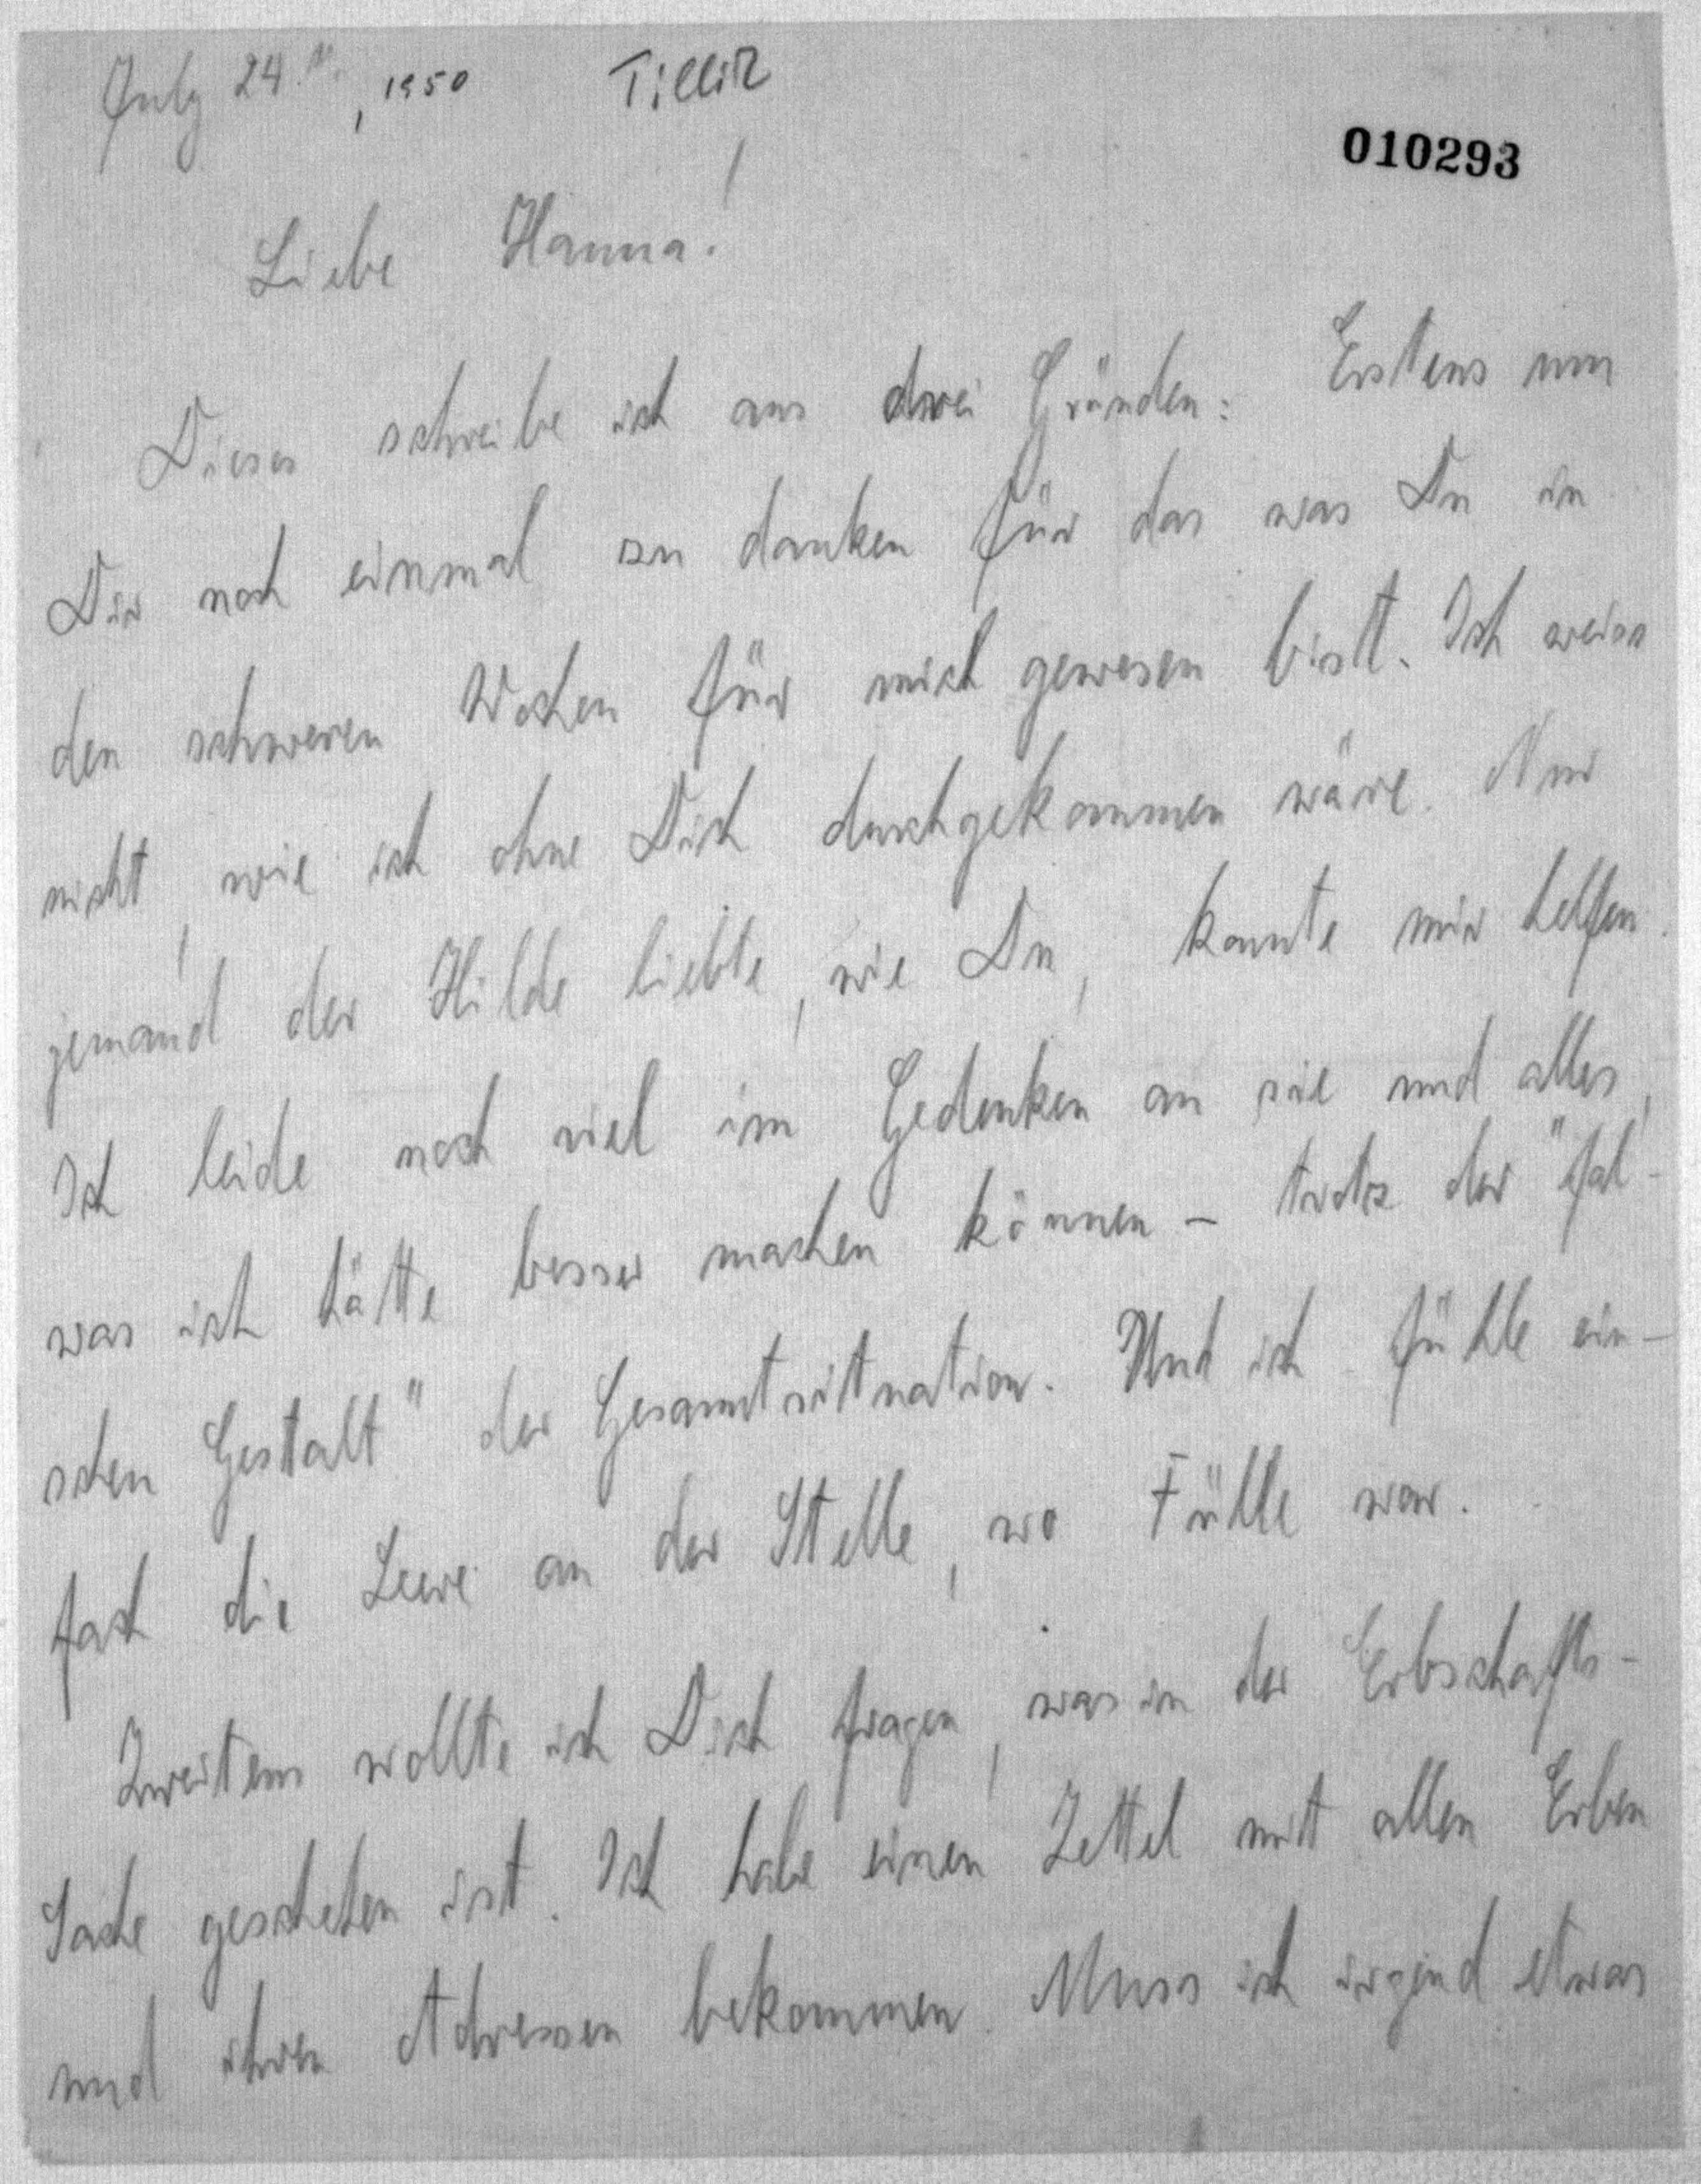 July 24th, 1950 Tillich
010293
Liebe Hanna!
Dieses schreibe ich aus drei Gründen: Erstens um
Dir noch einmal zu danken für das was Du in
den schweren Wochen für mich gewesen bist. Ich weiss
nicht, wie ich ohne Dich durchgekommen wäre. Nur
jemand der Hilde liebte, wie Du, konnte mir helfen.
Ich leide noch viel im Gedenken an sie und alles,
was ich hätte besser machen können - trotz der "fal-
schen Gestalt" der Gesamtsituation. Und ich fühle ein-
fach die Leere an der Stelle, wo Fülle war.
Zweitens wollte ich Dich fragen, was in der Erbschafts-
Sache geschehen ist. Ich habe einen Zettel mit allen Erben
und ihren Adressen bekommen. Muss ich irgend etwas